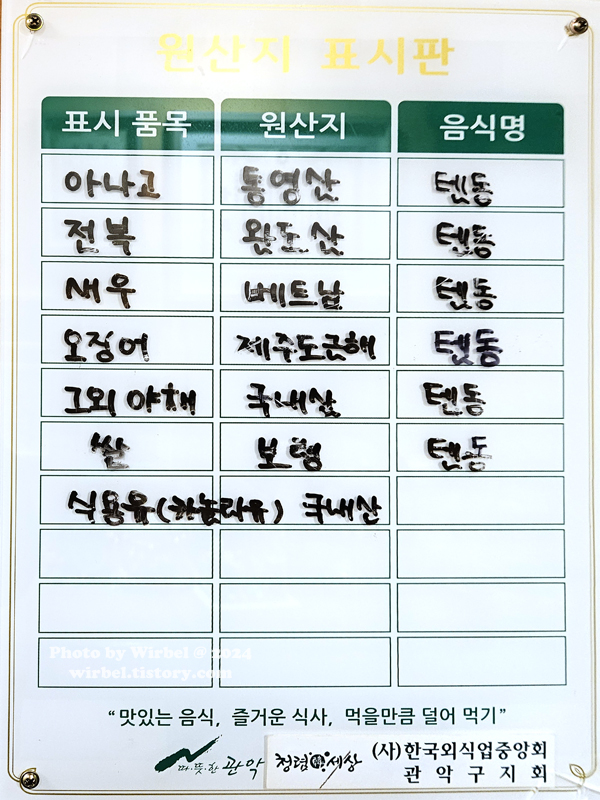 원산지 표시판
표시 품목 원산지 음식명
아나고 통영산 텐동
전복 완도산 텐동
새우 베트남 텐동
오징어 제주도근해 텐동
그외 야채 국내산 텐동
쌀 보령 텐동
식용유(카놀라유) 국내산
Photo by Wirbel @ 2024
wirbel.tistory.com
“맛있는 음식, 즐거운 식사, 먹을만큼 덜어 먹기”
따·뜻·한 관악 청렴 세상 (사)한국외식업중앙회
관악구지회